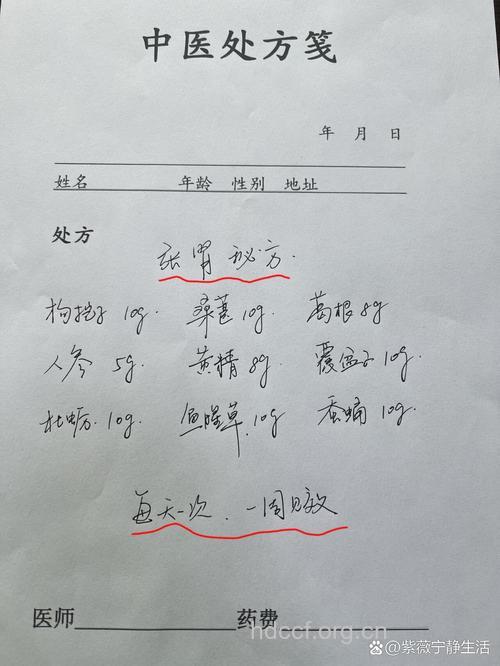 中医处方笺
年 月 日
姓名 年龄 性别 地址
处方
张胃秘方.
枸杞子 10g. 桑葚 10g. 葛根 8g
人参 5g. 黄精 8g 覆盆子 10g.
牡蛎. 10g. 鱼腥草. 10g 蚕蛹 10g.
每天一次. 一周见效
医师 药费
hdccf.org.cn
紫薇宁静生活